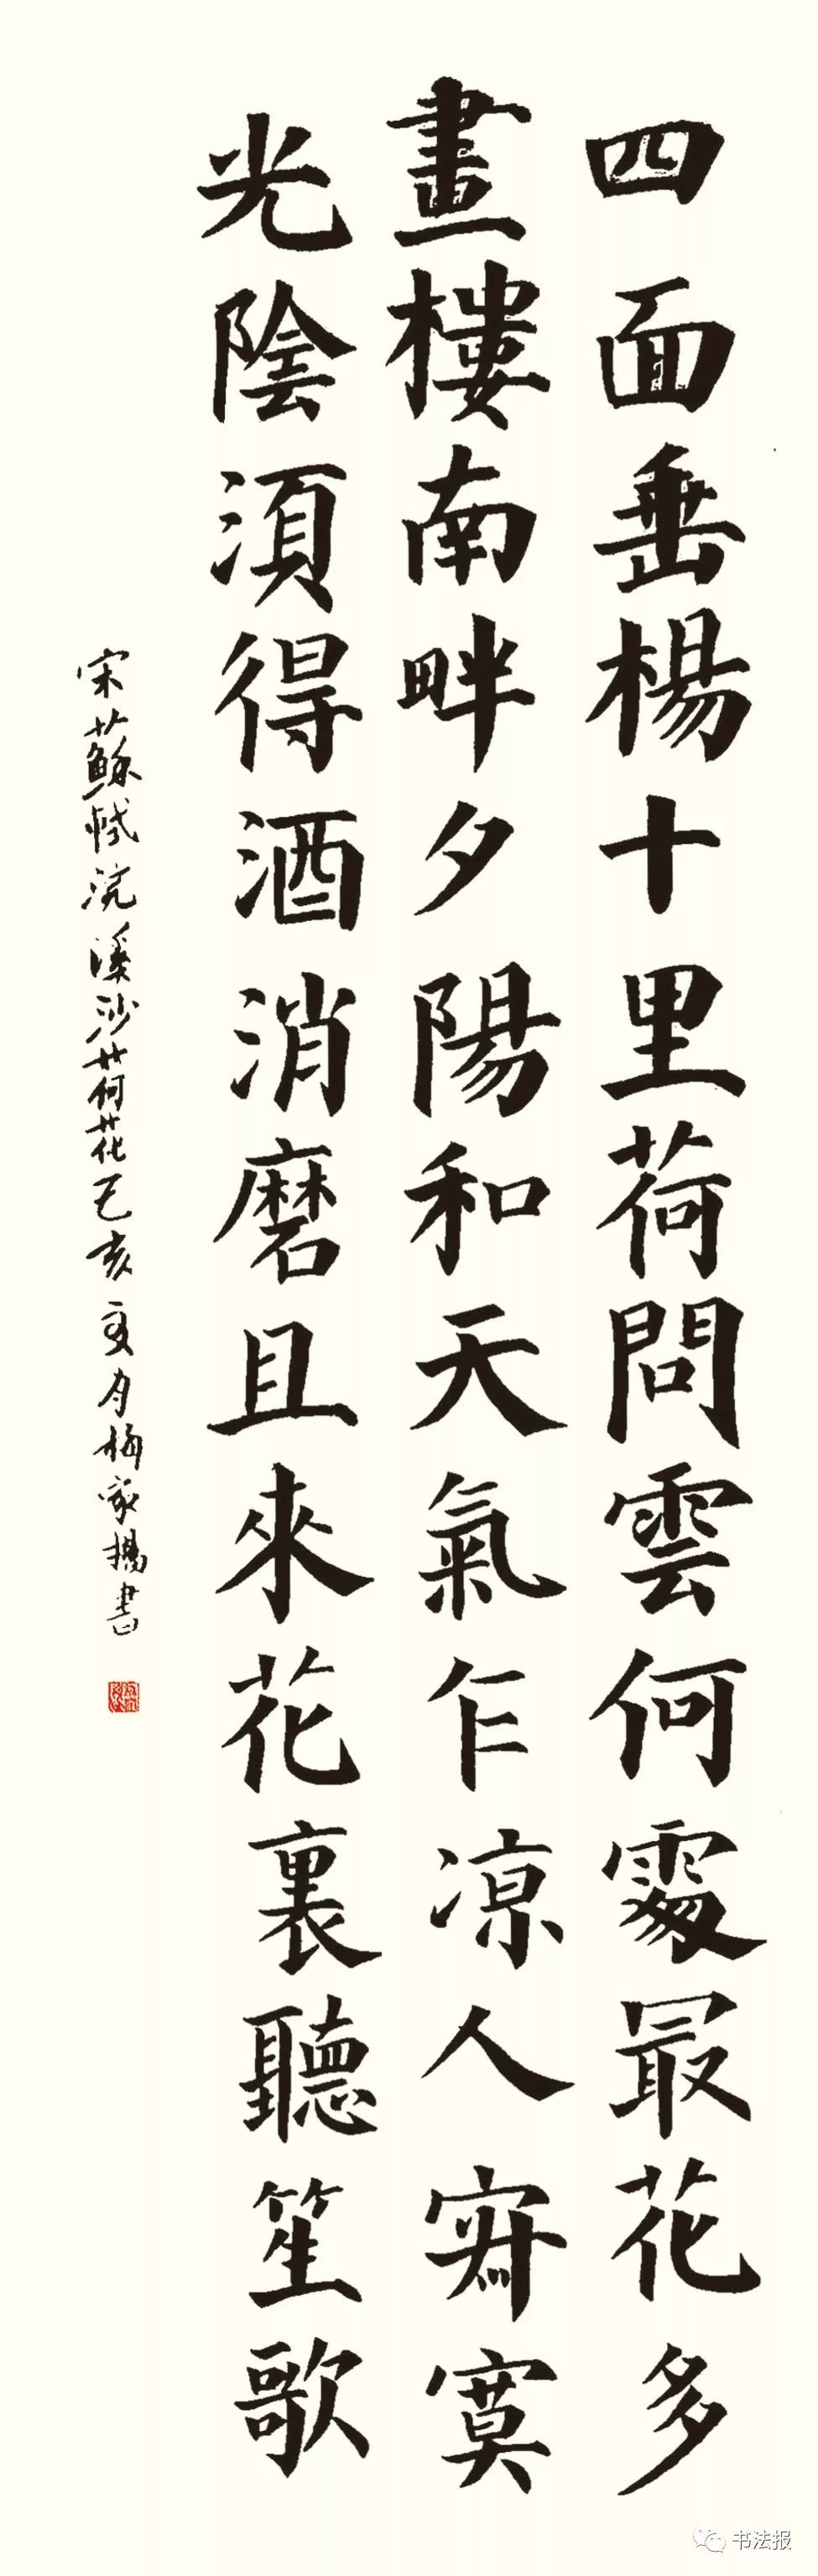 四面垂楊十里荷問雲何處最花多
畫樓南畔夕陽和天氣乍涼人寂寞
光陰須得酒消磨且來花裏聽笙歌
宋蘇軾浣溪沙荷花己亥夏月梅家揚書
书法报